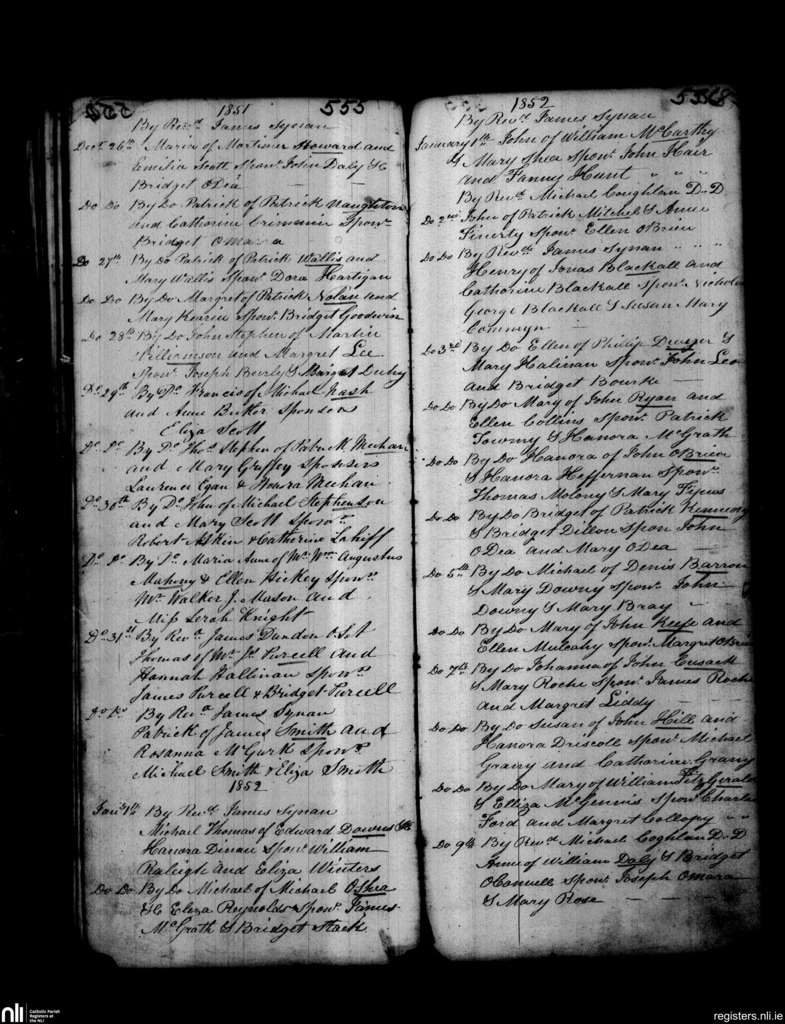 1851 555
By Revd. James Synan
Decr. 26th Maria of Mortimer Howard and
Emilia Scott Sponr. John Daly &
Bridget ODea
Do Do By Do Patrick of Patrick Naughton
and Catherine Sponr.
Bridget OMara
Do 27th By Do Patrick of Patrick Wallis and
Mary Wallis Sponr. Dora Hartigan
Do Do By Do Margret of Patrick Nolan and
Mary Sponr. Bridget Goodwin
Do 28th By Do John Stephen of Martin
Williamson and Margret Lee
Sponr. Joseph & Margret
Do. 29th By Do. Francis of Michael Nash
and Anne Sponsors
Eliza Scott
Do. Do. By Do. Thos. Stephen of Patk. M. Meehan
and Mary Griffey Sponsors
Laurence Egan & Honora Meehan
Do. 30th By Do. John of Michael Stephenson
and Mary Scott Sponrs.
Robert Askin & Catherine Lahiff
Do. Do. By Do. Maria Anne of Mr. Wm. Augustus
Mahony & Ellen Hickey Sponrs.
Mr. Walker J. Mason and
Miss Knight
Do. 31st By Revd. James Dundon
Thomas of Mr. Js. Purcell and
Hannah Hallinan Sponrs.
James Purcell & Bridget Purcell
Do. Do. By Revd. James Synan
Patrick of James Smith and
Rosanna McGurk Sponrs.
Michael Smith & Eliza Smith
1852
Janr. 1th By Revd. James Synan
Michael Thomas of Edward Downs &
Hanora Dinan Sponr. William
Raleigh and Eliza Winters
Do Do By Do Michael of Michael OShea
& Eliza Reynolds Sponr. James
McGrath & Bridget Stack
1852
By Revd. James Synan
January 1th John of William McCarthy
& Mary Shea Sponr. John Hair
and Fanny Hunt " " "
By Revd. Michael Coughlan D.D
Do 2nd John of Patrick Mitchel & Anne
Finerty Sponr. Ellen OBrien
Do Do By Revd. James Synan " " "
Henry of Jonas Blackall and
Catherine Blackall Sponr. Nicholas
George Blackall & Susan Mary
Commyn
Do 3rd By Do Ellen of Phillip Dwyer &
Mary Halinan Sponr. John Leo
and Bridget Bourke
Do Do By Do Mary of John Ryan and
Ellen Collins Sponr. Patrick
Toomy & Hanora McGrath
Do Do By Do Hanora of John OBrien
& Hanora Heffernan Sponr.
Thomas Molony & Mary
Do Do By Do Bridget of Patrick Kennedy
& Bridget Dillon Spon John
ODea and Mary ODea
Do 5th By Do Michael of Denis Barron
& Mary Downy Sponr. John
Downy & Mary Bray
Do Do By Do Mary of John Keefe and
Ellen Mulcahy Sponr. Margret OBrien
Do 7th By Do Johanna of John Cusack
& Mary Roche Sponr. James Roche
and Margret Liddy
Do Do By Do Susan of John Hill and
Hanora Driscoll Sponr. Michael
Grany and Catherine Grany
Do Do By Do Mary of William FitzGerald
& Elliza McGennis Sponr. Charles
Ford and Margret Collopy " "
Do 9th By Revd. Michael Coghlan D.D
Anne of William Daly & Bridget
OConnell Sponr. Joseph Omara
& Mary Rose
nli
Catholic Parish
Registers at
the NLI
registers.nli.ie